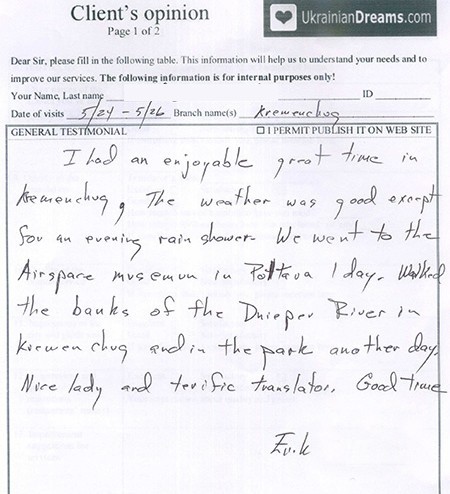 Client's opinion
Page 1 of 2
UkrainianDreams.com
Dear Sir, please fill in the following table. This information will help us to understand your needs and to
improve our services. The following information is for internal purposes only!
Your Name, Last name ID
Date of visits 5/24 - 5/26 Branch name(s) Kremenchug
GENERAL TESTIMONIAL ☐ I PERMIT PUBLISH IT ON WEB SITE
I had an enjoyable great time in
Kremenchug, The weather was good except
for an evening rain shower. We went to the
Airspace musemun in Poltava 1 day. Walked
the banks of the Dnieper River in
Kremenchug and in the park another day.
Nice lady and terific translator. Good time